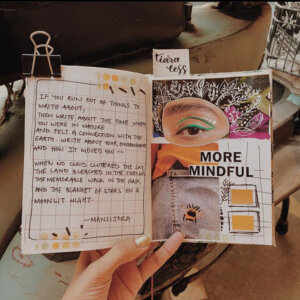 IF YOU RUN OUT OF THINGS TO
WRITE ABOUT,
THEN WRITE ABOUT THE TIME WHEN
YOU WERE IN NATURE
AND FELT A CONNECTION WITH THE
EARTH. WRITE ABOUT YOUR ENVIRONMENT
AND HOW IT MOVED YOU —
WHEN NO CLOUD CLUTTERED THE SKY,
THE LAND BLEACHED IN THE
THE MEMORABLE WALK IN THE PARK
AND THE BLANKET OF STARS ON A
MOONLIT NIGHT.
tiara
less
MORE
MINDFUL